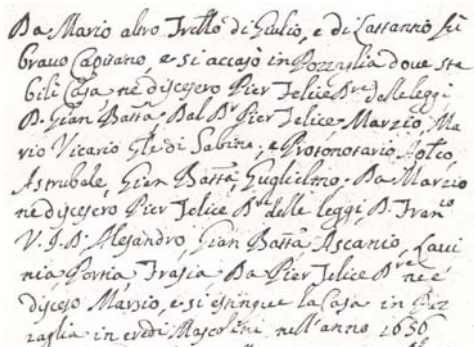 Da Mario altro Frello di Giulio, e di Lattannio fù
bravo Capitano, e si accasò in Pozzaglia dove sta
bilì Casa, ne discesero Pier Felice Dre delle leggi
D. Gian Batta Dal Dr Pier Felice Marzio, Ma
rio Vicario Gle di Sabina, e Protonotario Aplco,
Astrubale, Gian Batta, Guglielmo. Da Marzio
ne discesero Pier Felice Dre delle leggi, D. Franco
V. J. D. Alesandro, Gian Batta, Ascanio, Lavi
nia, Portia, Da Pier Felice Dre ne è
disceso Marzio, e si estingue la Casa in Poz
zaglia in eredi Mascolini nell'anno 1656